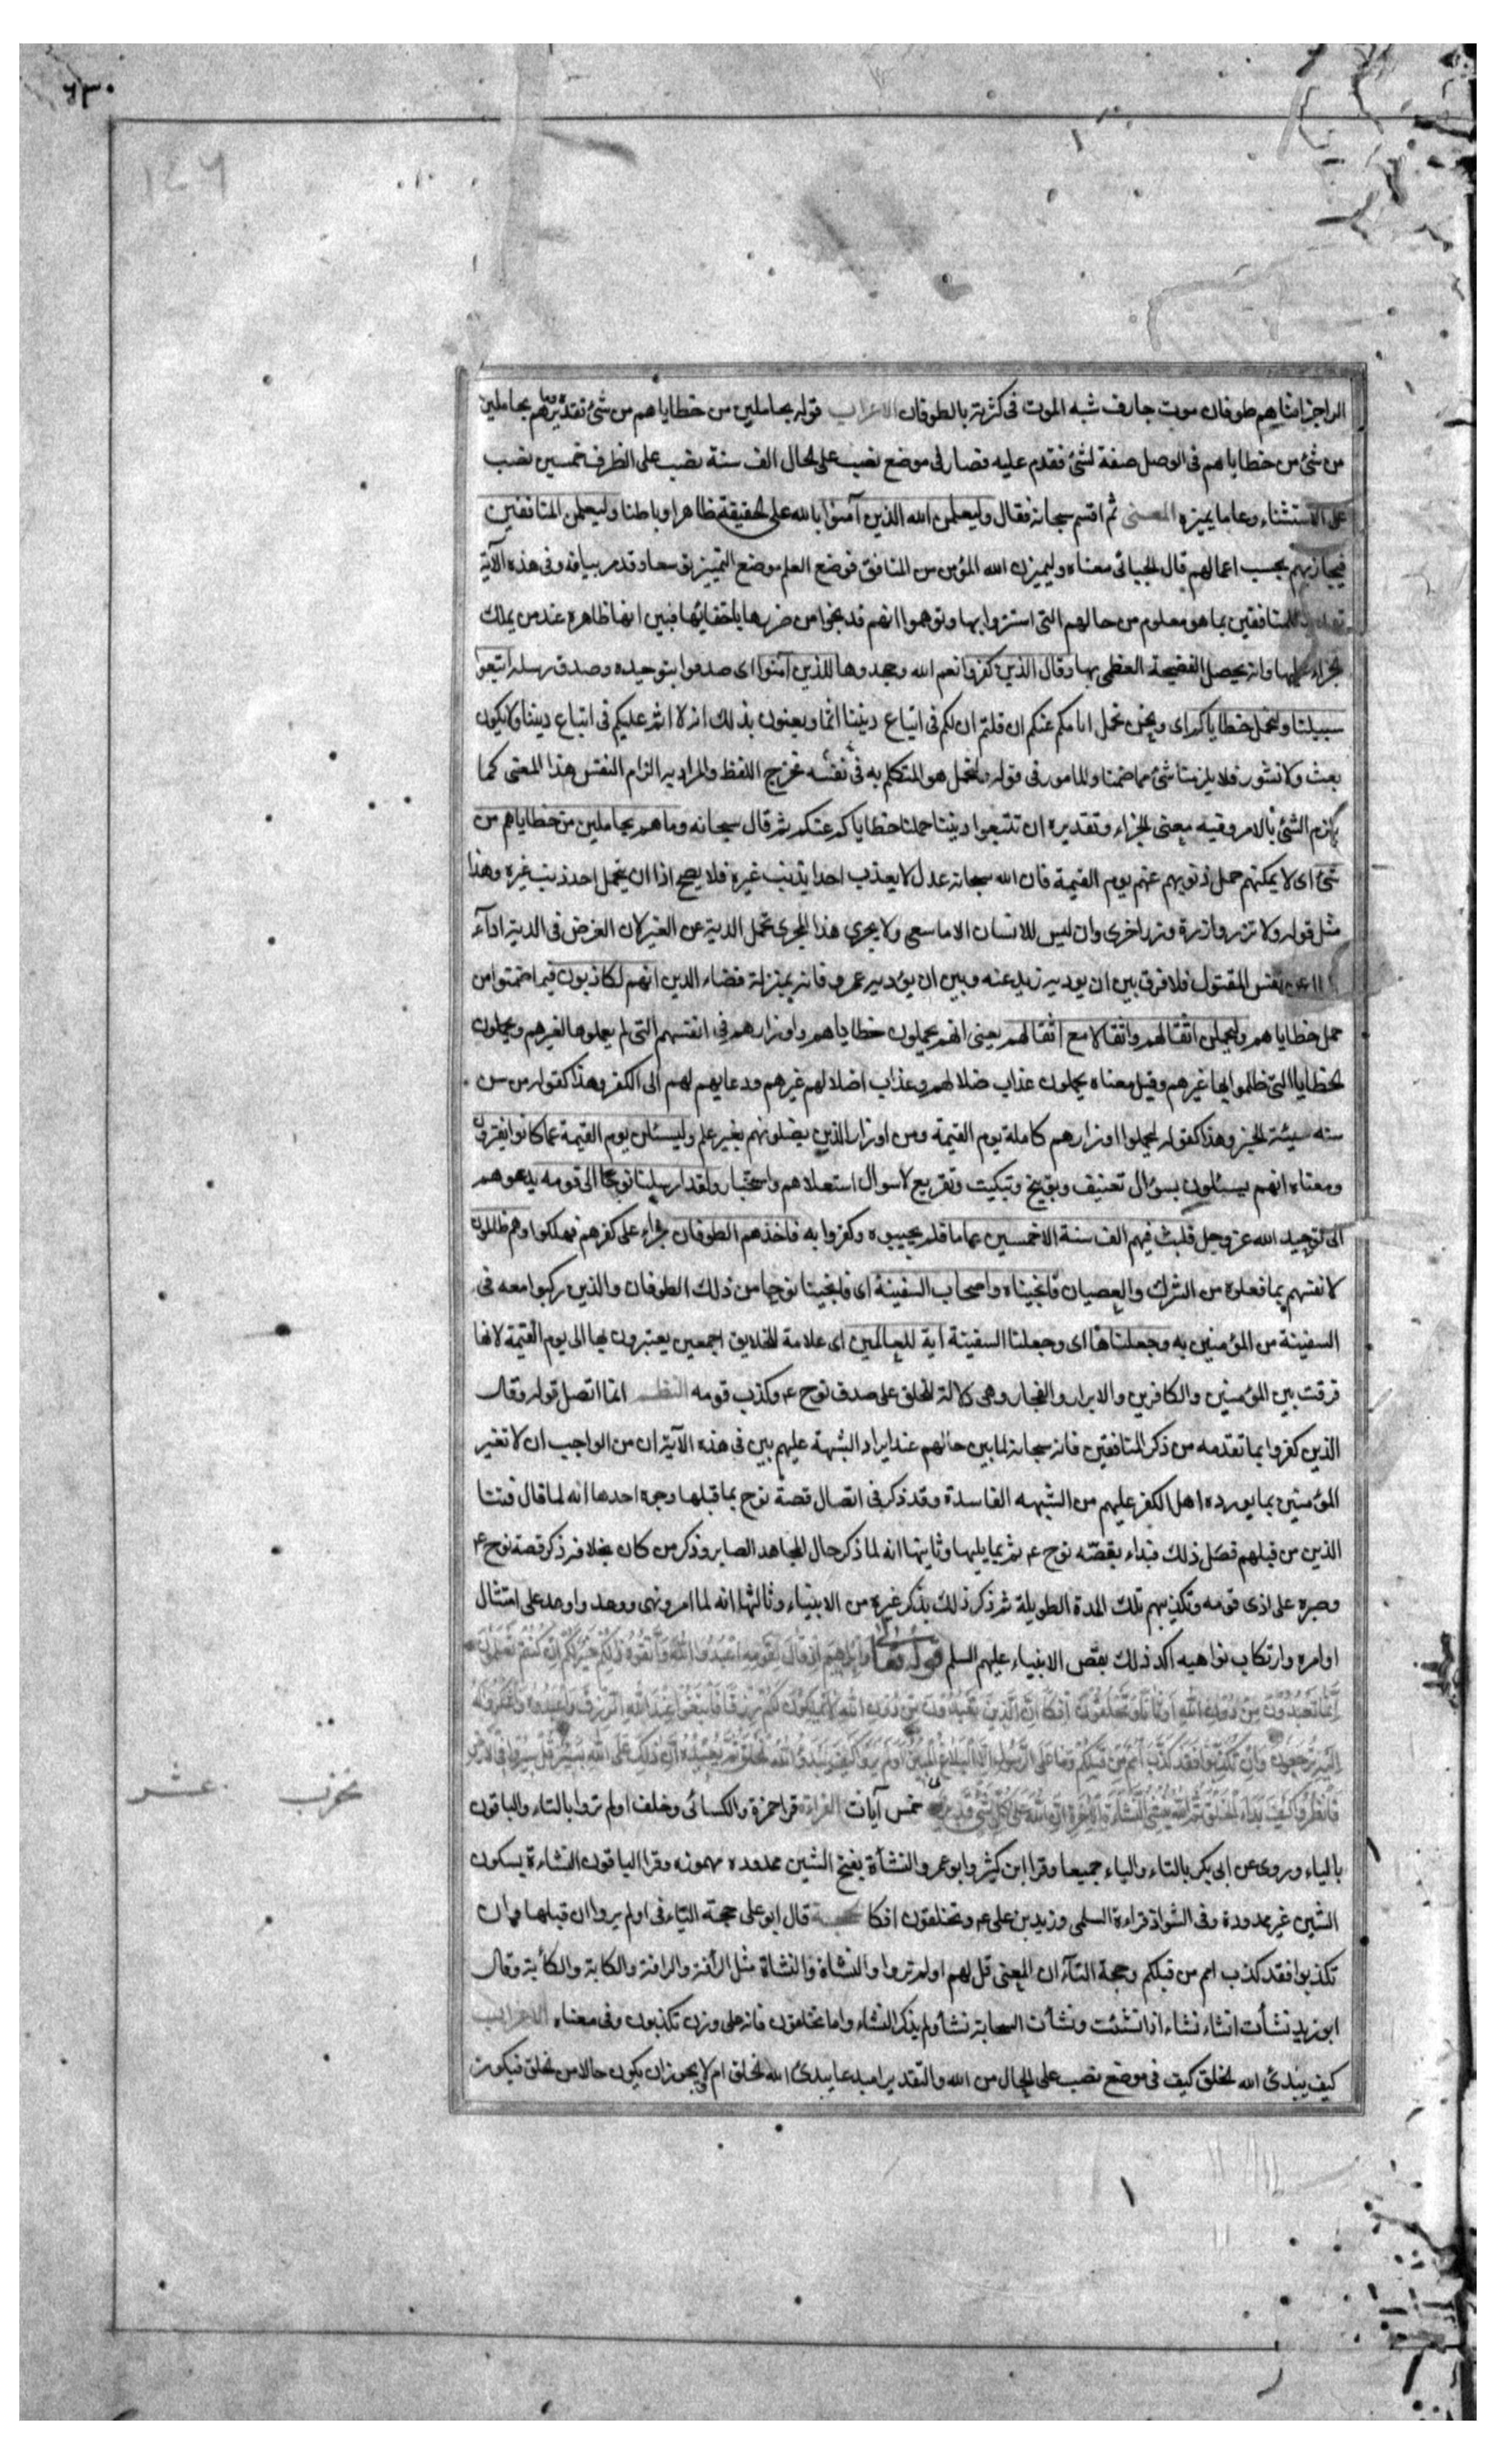 ٤٣٠
١٤٦
الراجز افناهم طوفان موت جارف شبه الموت فى كثرته بالطوفان الاعراب قوله بحاملين من خطاياهم من شئ تقديره وما هم بحاملين
من شئ من خطاياهم فى الوصل صفة لشئ فقدم عليه فصار فى موضع نصب على الحال الف سنة نصب على الظرف خمسين نصب
على الاستثناء وعاما يميزه المعنى ثم اقسم سبحانه فقال وليعلمن الله الذين آمنوا بالله على الحقيقة ظاهرا وباطنا وليعلمن المنافقين
فيجازيهم بحسب اعمالهم قال الجبائى معناه وليميزن الله المؤمن من المنافق فوضع العلم موضع التمييز توسعا وقد مر بيانه وفى هذه الآية
تهديد للمنافقين بما هو معلوم من حالهم التى استزوا بها وتوهموا انهم قد نجوا من ضررها باخفائها فبين انها ظاهرة عند من يملك
الجزاء عليها وانه يحصل الفضيحة العظمى بها وقال الذين كفروا نعم الله وجحدوها للذين آمنوا اى صدقوا بتوحيده وصدق رسله اتبعوا
سبيلنا ولنحمل خطاياكم اى ونحن نحمل اثامكم عنكم ان قلتم ان لكم فى اتباع ديننا اثما ويعنون بذلك انه لا اثم عليكم فى اتباع ديننا ولا يكون
بعث ولا نشور فلا يلزمنا شئ مما ضمنا والمامور فى قوله ولنحمل هو المتكلم به فى نفسه مخرج اللفظ والمراد به الزام النفس هذا المعنى كما
يلزم الشئ بالامر وفيه معنى الجزاء وتقديره ان تتبعوا ديننا حملنا خطاياكم عنكم ثم قال سبحانه وما هم بحاملين من خطاياهم من
شئ اى لا يمكنهم حمل ذنوبهم عنهم يوم القيمة فان الله سبحانه عدل لا يعذب احدا بذنب غيره فلا يصح اذا ان يتحمل احد ذنب غيره وهذا
مثل قوله ولا تزر وازرة وزر اخرى وان ليس للانسان الا ما سعى ولا يجرى هذا مجرى تحمل الدية عن الغير لان الغرض فى الدية اداء
عن نفس المقتول فلا فرق بين ان يوديه زيد عنه وبين ان يؤديه عمرو فانه بمنزلة قضاء الدين انهم لكاذبون فيما ضمنوا من
حمل خطاياهم وليحملن اثقالهم واثقالا مع اثقالهم يعنى انهم يحملون خطاياهم واوزارهم فى انفسهم التى لم يعملوها لغيرهم ويحملون
الخطايا التى ظلموا بها غيرهم وقيل معناه يحملون عذاب ضلالهم وعذاب اضلالهم غيرهم ودعايهم لهم الى الكفر وهذا كقوله من سن
سنة سيئة الخبر وهذا كقوله ليحملوا اوزارهم كاملة يوم القيمة ومن اوزار الذين يضلونهم بغير علم وليسئلن يوم القيمة عما كانوا يفترون
ومعناه انهم يسئلون سؤال تعنيف وتوبيخ وتبكيت وتقريع لا سوال استعلام واستخبار ولقد ارسلنا نوحا الى قومه يدعوهم
الى توحيد الله عز وجل فلبث فيهم الف سنة الا خمسين عاما فلم يجيبوه وكفروا به فاخذهم الطوفان جزاء على كفرهم فهلكوا وهم ظالمون
لانفسهم بما فعلوه من الشرك والعصيان فانجيناه واصحاب السفينة اى فانجينا نوحا من ذلك الطوفان والذين ركبوا معه فى
السفينة من المؤمنين به وجعلناها اى وجعلنا السفينة آية للعالمين اى علامة للخلايق اجمعين يعتبرون بها الى يوم القيمة لانها
فرقت بين المؤمنين والكافرين والابرار والفجار وهى دلالة للخلق على صدق نوح ع وكذب قومه النظم انما اتصل قوله وقال
الذين كفروا بما تقدمه من ذكر المنافقين فانه سبحانه لما بين حالهم عند ايراد الشبهة عليهم بين فى هذه الآية ان من الواجب ان لا تغير
المؤمنين بما يورده اهل الكفر عليهم من الشبهه الفاسدة وقد ذكر فى اتصال قصة نوح بما قبلها وجوه احدها انه لما قال فتنا
الذين من قبلهم فصل ذلك فبداء بقصّه نوح ع ثم بما يليها وثانيها انه لما ذكر حال المجاهد الصابر وذكر من كان بخلافه ذكر قصة نوح ع
وصبره على اذى قومه وتكذيبهم تلك المدة الطويلة ثم ذكر ذلك بذكر غيره من الانبياء وثالثها انه لما امر ونهى ووعد واوعد على امتثال
اوامره وارتكاب نواهيه اكد ذلك بقصص الانبياء عليهم السلم قوله تعالى وَاِبْرٰهِيمَ اِذْ قَالَ لِقَوْمِهِ اعْبُدُوا اللهَ وَاتَّقُوهُ ذٰلِكُمْ خَيْرٌ لَكُمْ اِنْ كُنْتُمْ تَعْلَمُونَ
اِنَّمَا تَعْبُدُونَ مِنْ دُونِ اللهِ اَوْثَانًا وَتَخْلُقُونَ اِفْكًا اِنَّ الَّذِينَ تَعْبُدُونَ مِنْ دُونِ اللهِ لَا يَمْلِكُونَ لَكُمْ رِزْقًا فَابْتَغُوا عِنْدَ اللهِ الرِّزْقَ وَاعْبُدُوهُ وَاشْكُرُوا لَهُ
اِلَيْهِ تُرْجَعُونَ وَاِنْ تُكَذِّبُوا فَقَدْ كَذَّبَ اُمَمٌ مِنْ قَبْلِكُمْ وَمَا عَلَى الرَّسُولِ اِلَّا الْبَلَاغُ الْمُبِينُ اَوَلَمْ يَرَوْا كَيْفَ يُبْدِئُ اللهُ الْخَلْقَ ثُمَّ يُعِيدُهُ اِنَّ ذٰلِكَ عَلَى اللهِ يَسِيرٌ قُلْ سِيرُوا فِى الْاَرْضِ
فَانْظُرُوا كَيْفَ بَدَاَ الْخَلْقَ ثُمَّ اللهُ يُنْشِئُ النَّشْاَةَ الْآخِرَةَ اِنَّ اللهَ عَلَى كُلِّ شَىْءٍ قَدِيرٌ خمس آيات القراءة قرا حمزة والكسائى وخلف اولم تروا بالتاء والباقون
بالياء وروى عن ابى بكر بالتاء والياء جميعا وقرا ابن كثير وابو عمرو النشأة بفتح الشين ممدودة مهموزه وقرا الباقون النشاءة بسكون
الشين غير ممدودة وفى الشواذ قراءة السلمى وزيد بن على ع وتخلقون افكا الحجة قال ابو على حجة التاء فى اولم يروا ان قبلها وان
تكذبوا فقد كذب امم من قبلكم وحجة التآء ان المعنى قل لهم اولم تروا والنشاة والنشاة مثل الرأفة والرافة والكابة والكأبة وقال
ابو زيد نشأت انشاء نشاء اذا نشئت ونشأت السحابة نشأ ولم يذكر النشاء واما تخلقون فانه على وزن تكذبون وفى معناه الاعراب
كيف يبدئ الله الخلق كيف فى موضع نصب على الحال من الله والتقدير امبدعا يبدئ الله الخلق ام لا ويجوز ان يكون حالا من الخلق فيكون
نحزب عشر